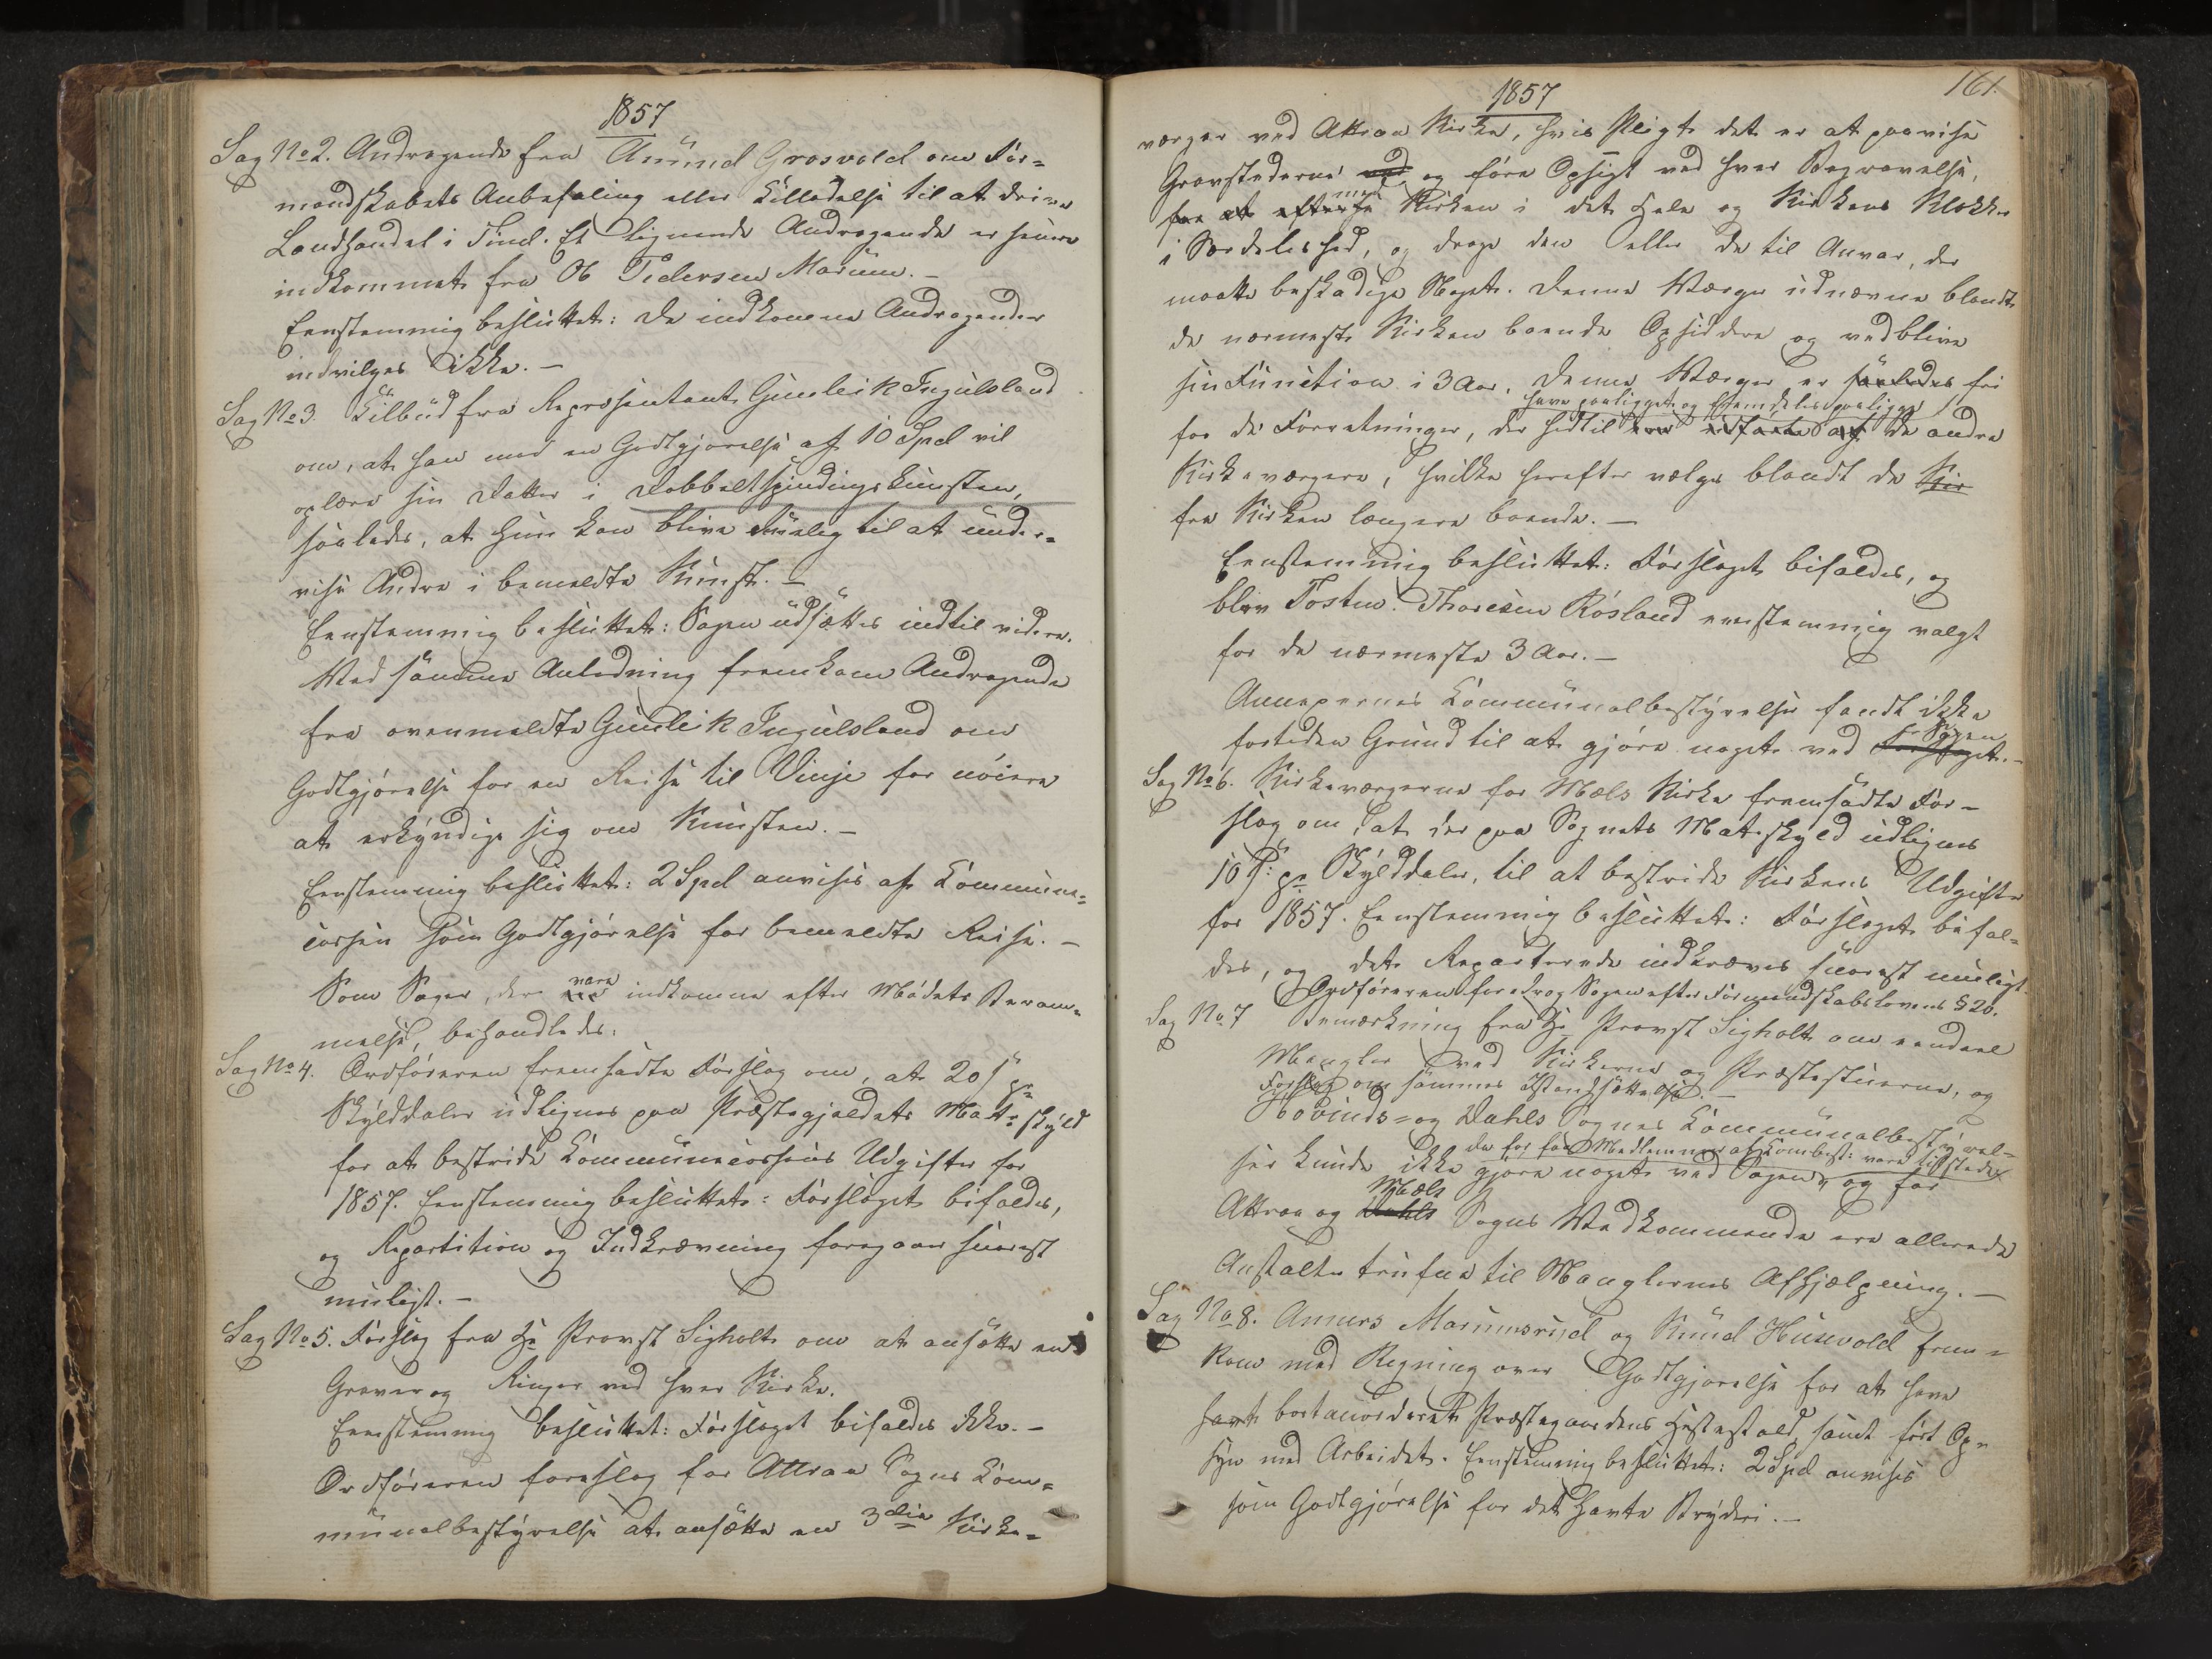 1857
Sag No 2. Andragende fra Amund Grosvold om For-
mandskabets Anbefaling eller Tilladelse til at drive
Landhandel i Tind. Et lignende Andragende er senere
indkommet fra Ole Pedersen Marum.-
Eenstemmig besluttet: De indkomne Andragender
indvilges ikke.-
Sag No 3. Tilbud fra Repræsentant Gunleik Ingulsland
om, at han mod en Godtgjørelse af 10 Spd vil
oplære sin Datter i Dobbeltspindingskunsten,
saaledes, at hun kan blive duelig til at under-
vise Andre i bemeldte Kunst.-
Eenstemmig besluttet: Sagen udsættes indtil videre.
Ved samme Anledning fremkom Andragende
fra ovenmeldte Gunleik Ingulsland om
Godtgjørelse for en Reise til Vinje for nøiere
at erkyndige sig om Kunsten.-
Eenstemmig besluttet: 2 Spd anvises af Commune-
cassen som Godtgjørelse for bemeldte Reise.-
Som Sager, der vare indkomne efter Mødets Beram-
melse, behandledes:
Sag No 4. Ordføreren fremsatte Forslag om, at 20 s pr
Skylddaler udlignes paa Præstegjeldets Matr skyld
for at bestride Communecassens Udgifter for
1857. Eenstemmig besluttet: Forslaget bifaldes,
og Repartition og Indkrævning foregaar snarest
muligst.-
Sag No 5. Forslag fra Hr Provst Sigholt om at ansætte en
Graver og Ringer ved hver Kirke.
Eenstemmig besluttet: Forslaget bifaldes ikke.-
Ordføreren foreslog for Attraa Sogns Com-
munalbestyrelse at ansætte en 3die Kirke-
161.
1857
værger ved Attraa Kirke, hvis Pligt det er at paavise
Gravstederne ved og føre Opsigt ved hver Begravelse,
for at efterse med Kirken i det Hele og Kirkens Klokker
i Særdeleshed, og drage den eller de til Ansvar, der
maatte beskadige Noget. Denne Værge udnævnes blandt
de nærmest Kirken boende Opsiddere og vedblive
sin Function i 3 Aar. Denne Værger er saaledes fri
have paaligget og fremdeles paaligge
for de Forretninger, der hidtil ere udførte af de andre
Kirkeværgere, hvilke herefter vælges blandt de Kir
fra Kirken længere boende.-
Eenstemmig besluttet: Forslaget bifaldes, og
blev Tosten Thoresen Rosland eenstemmig valgt
for de nærmeste 3 Aar.-
Annexernes Communalbestyrelse fandt ikke
fortiden Grund til at gjøre noget ved Forslaget. Sagen
Sag No 6. Kirkeværgerne for Mæls Kirke fremsatte For-
slag om, at der paa Sognets Matrskyld udlignes
10 s: pr Skylddaler, til at bestride Kirkens Udgifter
for 1857. Eenstemmig besluttet: Forslaget bifal-
des, og det Reparterede indkræves snarest muligt.
Ordføreren foredrog Sagen efter Formandskabslovens § 20.
Sag No 7 Bemærkning fra Hr Provst Sigholt om eendeel
Mangler ved Kirkerne og Præstestuerne, og
Forslag om sammes Istandsættelse.-
Hovinds- og Dahls Sognes Communalbestyrel-
da for faa Medlemmer af Combest: vare tilstede
ser kunde ikke gjøre noget ved Sagen, og for
Attraa og Dahls Mæls Sogns Vedkommende ere allerede
Anstalter trufne til Manglernes Afhjælpning.-
Sag No 8. Anners Marumsrud og Knud Husevold frem-
kom med Regning over Godtgjørelse for at have
havt bortaccorderet Præstegaardens Hestestald, samt ført Op-
syn med Arbeidet. Eenstemmig besluttet: 2 Spd anvises
som Godtgjørelse for det havte Bryderi.-